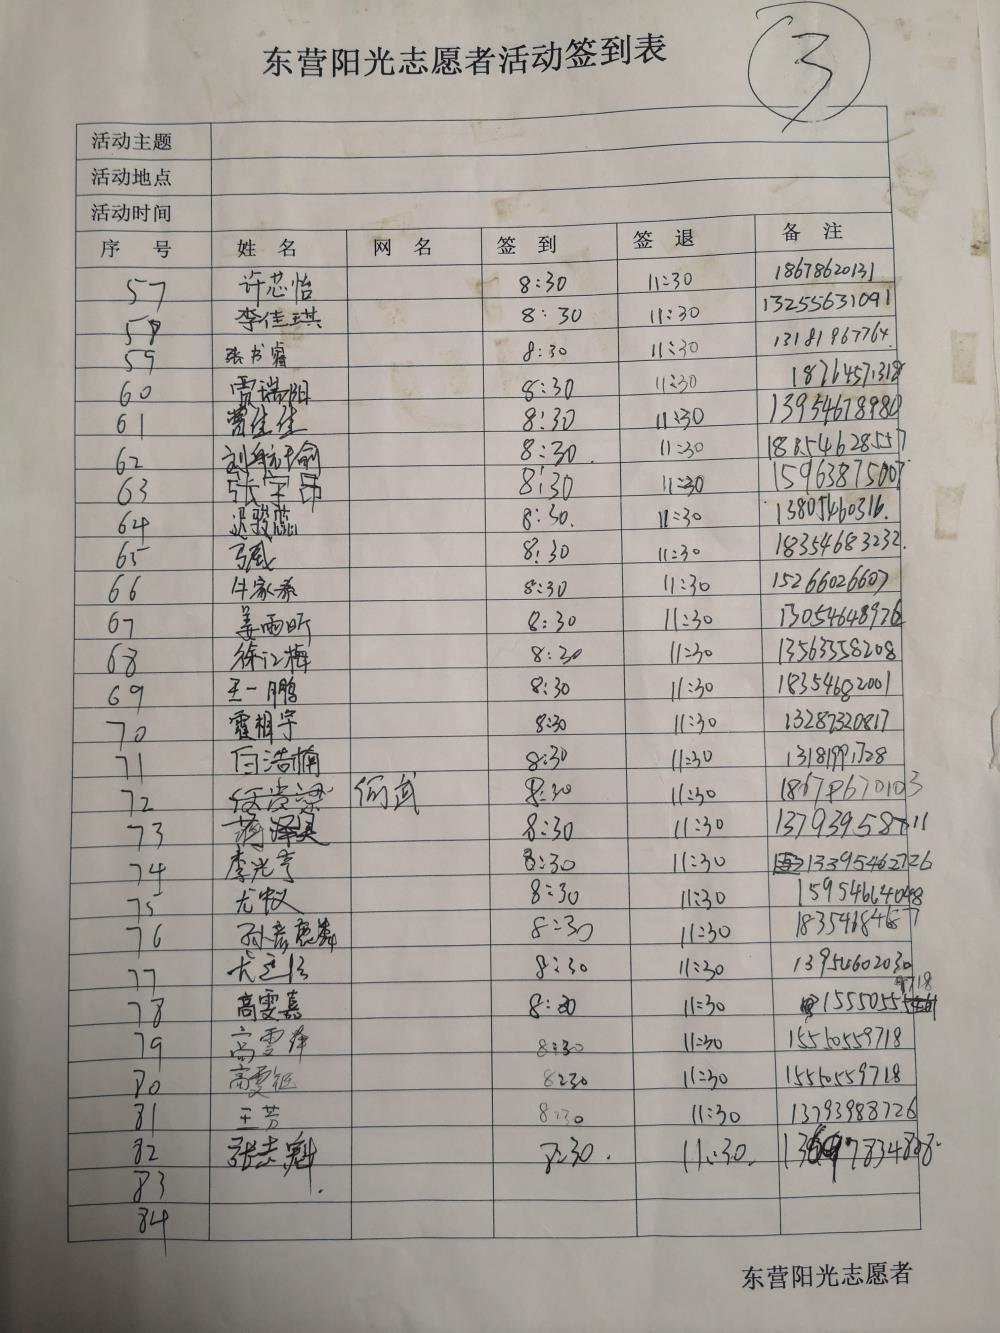 东营阳光志愿者活动签到表
3
活动主题
活动地点
活动时间
序 号 姓 名 网 名 签 到 签 退 备 注
57 许芯怡 8:30 11:30 18678620131
58 李佳琪 8:30 11:30 13255631091
59 张书睿 8:30 11:30 13181967764.
60 贾瑞阳 8:30 11:30 18764571318
61 曹佳佳 8:30 11:30 13954678980
62 8:30. 11:30 18854628557
63 8:30 11:30 15963875007
64 8:30. 11:30 13805460316.
65 8:30 11:30 18354683232.
66 8:30 11:30 15266026607
67 姜雨昕 8:30 11:30 13054648976
68 徐江梅 8:30 11:30 13563358208
69 王一鹏 8:30 11:30 18354682001
70 霍相宇 8:30 11:30 13287320817
71 白浩楠 8:30 11:30
72 8:30 11:30 18678670103
73 蒋泽昊 8:30 11:30
74 李光亭 8:30 11:30 13395462726
75 尤牧 8:30 11:30 15954664048
76 8:30 11:30
77 8:30 11:30 13954602030
78 高雯嘉 8:30 11:30
79 8:30 11:30 15550559718
80 8:30 11:30 15550559718
81 王芳 8:30 11:30 13793988726
82 张志魁 8:30. 11:30.
83
84
东营阳光志愿者